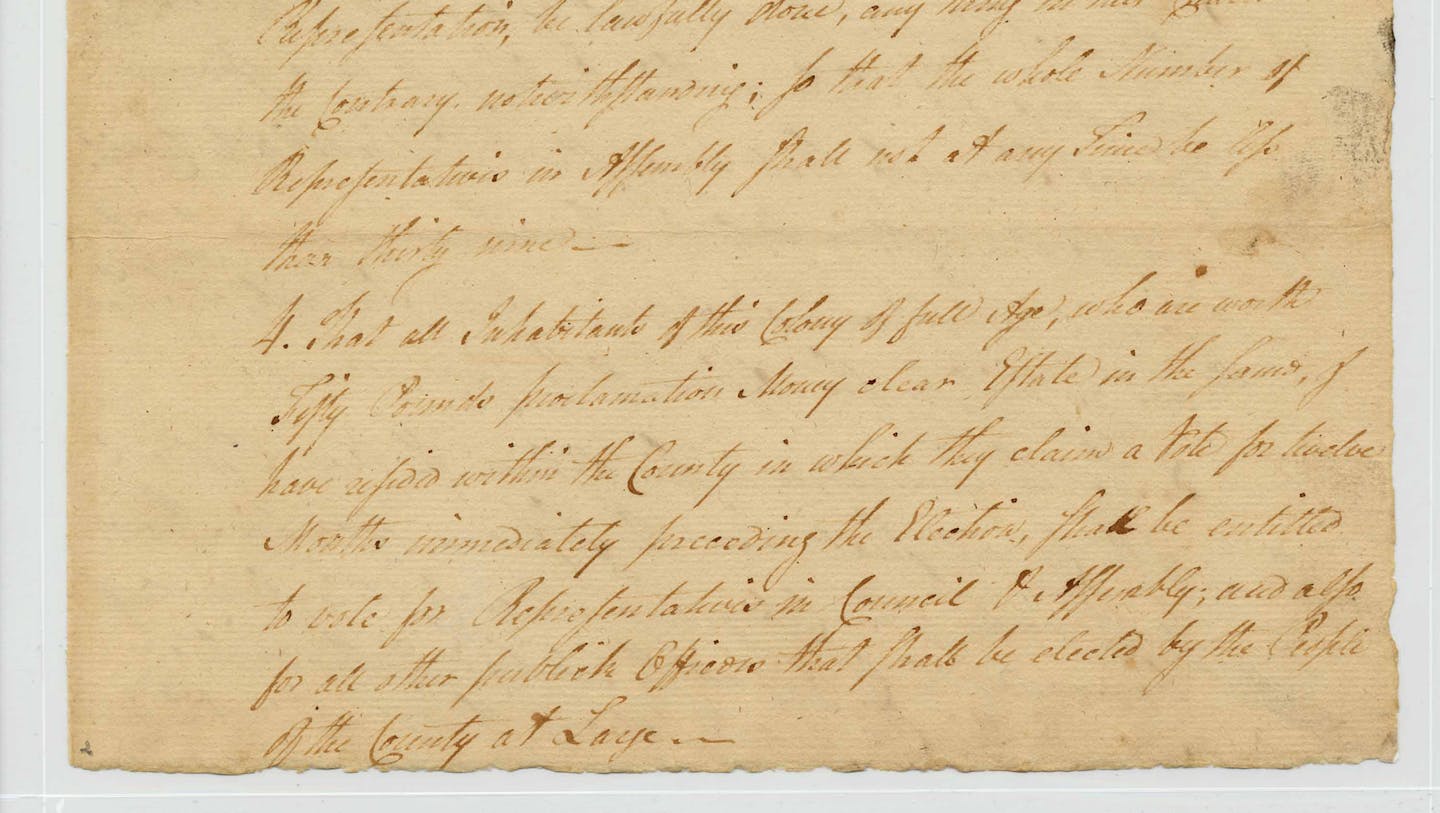 Representation, be lawfully done, any thing in this
the Contrary notwithstanding; so that the whole Number of
Representatives in Assembly shall not at any Time be less
than thirty nine.—
4. That all Inhabitants of this Colony of full Age, who are worth
Fifty Pounds proclamation Money clear Estate in the same, &
have resided within the County in which they claim a Vote for twelve
Months immediately preceeding the Election, shall be entitled
to vote for Representatives in Council & Assembly; and also
for all other publick Officers that shall be elected by the People
of the County at Large.—
2